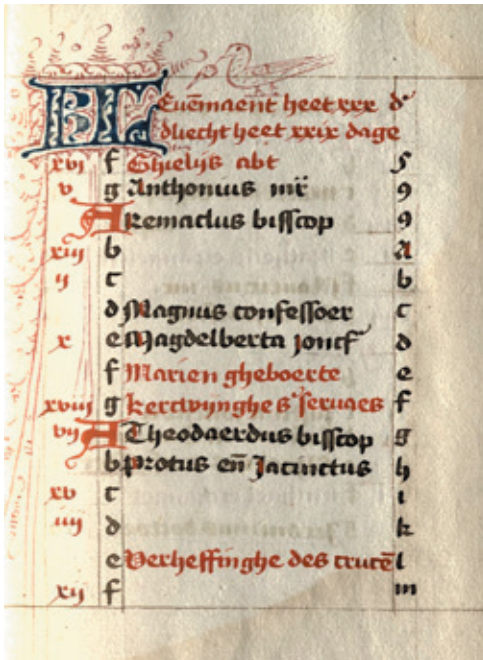 KL Euēmaent heet xxx d
dliecht heet xxix dage
xvi f Ghielijs abt
v g Anthonius mr̄ 9
A Remaclus bisscop 9
xiij b A
ij c b
d Magnus confessoer c
x e Magdelberta joncf d
f Marien gheboerte e
xviij g kercwijnghe s' seruaes f
vij A Theodaerdus bisscop g
b Protus en̄ Jacinctus h
xv c i
iiij d k
e Verheffinghe des crucē l
xij f m